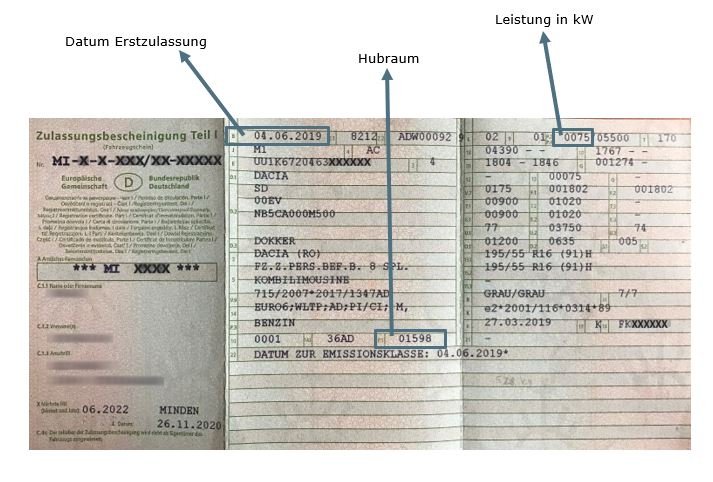 Leistung in kW
Datum Erstzulassung
Hubraum
Zulassungsbescheinigung Teil I
(Fahrzeugschein)
Nr. MI-X-X-XXX/XX-XXXXX
Europäische Gemeinschaft
D
Bundesrepublik Deutschland
*** MI XXXX ***
C.1.1 Name oder Firmenname
C.1.2 Vorname(n)
C.1.3 Anschrift
06.2022 MINDEN
26.11.2020
04.06.2019 8212 ADW00092 9
M1 AC
UU1K6720463XXXXXX 4
DACIA
SD
00EV
NB5CA000M500
DOKKER
DACIA (RO)
FZ.Z.PERS.BEF.B. 8 SPL.
KOMBILIMOUSINE
715/2007*2017/1347AD
EURO6;WLTP;AD;PI/CI; M,
BENZIN
0001 36AD 01598
DATUM ZUR EMISSIONSKLASSE: 04.06.2019*
02 01 0075/05500 170
04390 - - 1767 - -
1804 - 1846 001274 -
- 00075 -
0175 001802 001802
00900 01020 -
00900 01020 -
77 03750 74
01200 0635 005 -
195/55 R16 (91)H
195/55 R16 (91)H
-
GRAU/GRAU 7/7
e2*2001/116*0314*89
27.03.2019 K FKXXXXXX
-